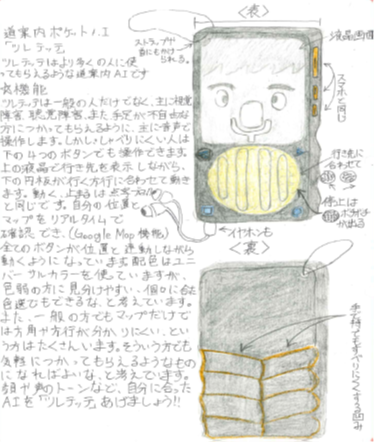 道案内ポケットA.I
「ツレテッテ」
ツレテッテはより多くの人に使
ってもらえるような道案内AIです
☆機能
ツレテッテは一般の人だけでなく、主に視覚
障害、聴覚障害、また手足が不自由な
方につかってもらえるように、主に音声で
操作します。しかし、しゃべりにくい人は
下の4つのボタンでも操作できます。
上の液晶で行き先を表示しながら、
下の円板が行く方向に合わせて動き
ます。動く、止まるは点字ブロック
と同じです。自分の位置と
マップをリアルタイムで
確認でき、(Google Map機能)
全てのボタンが位置と連動しながら
動くようになっています。配色はユニ
バーサルカラーを使っていますが、
色弱の方に見分けやすい、個々に合った
色選びもできるな、と考えています。
また、一般の方でもマップだけで
は方角や方行が分かりにくい、とい
う方はたくさんいます。そういう方でも
気軽につかってもらえるようなもの
になればよいな、と考えています。
声のトーンなど、自分に合った
AIを「ツレテッテ」あげましょう!!
<表>
ストラップで
首にもかけ
られる。
液晶画面
スマホと同じ
行き先に
合わせて
動く
停止は
ポチポチ
が出る
イヤホンも
<裏>
手で持ってもすべりにくくする凹み